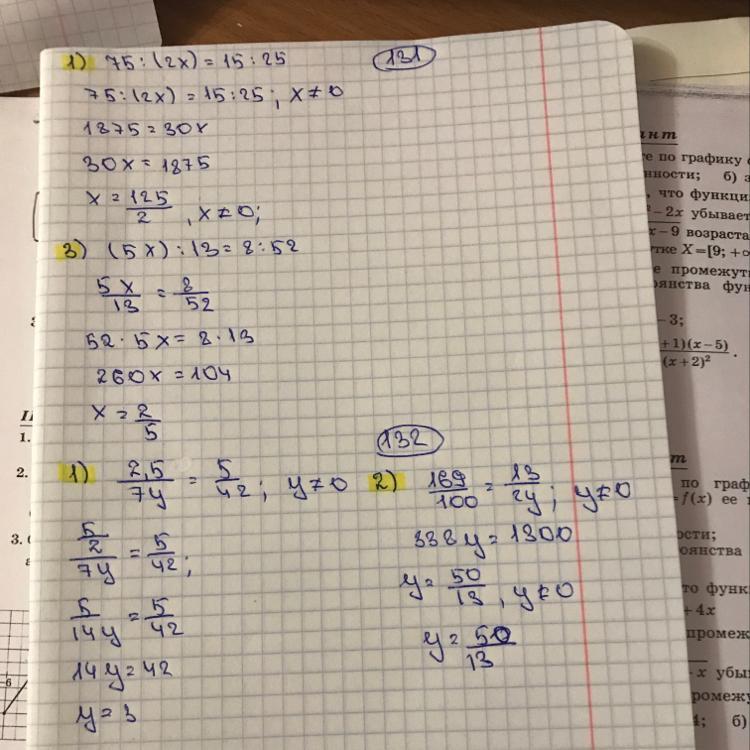 131
1) 75:(2x)=15:25
75:(2x)=15:25; x≠0
1875=30x
30x=1875
x=125/2, x≠0;
3) (5x):13=8:52
5x/13=8/52
52·5x=8·13
260x=104
x=2/5
132
1) 2,5/7y=5/42; y≠0
5/2/7y=5/42;
5/14y=5/42
14y=42
y=3
2) 169/100=13/2y; y≠0
338y=1300
y=50/13, y≠0
y=50/13
нт
е по графику
нности; б) з
, что функци
-2x убывает
x-9 возраста
тке X=[9; +∞
е промежут
янства фун
-3;
+1)(x-5)
(x+2)²
.
т
по граф
=f(x) ее
ости;
оянства
то функ
+4x
промеж
x убы
ромежу
4; б)
1.
2.
3.
-6